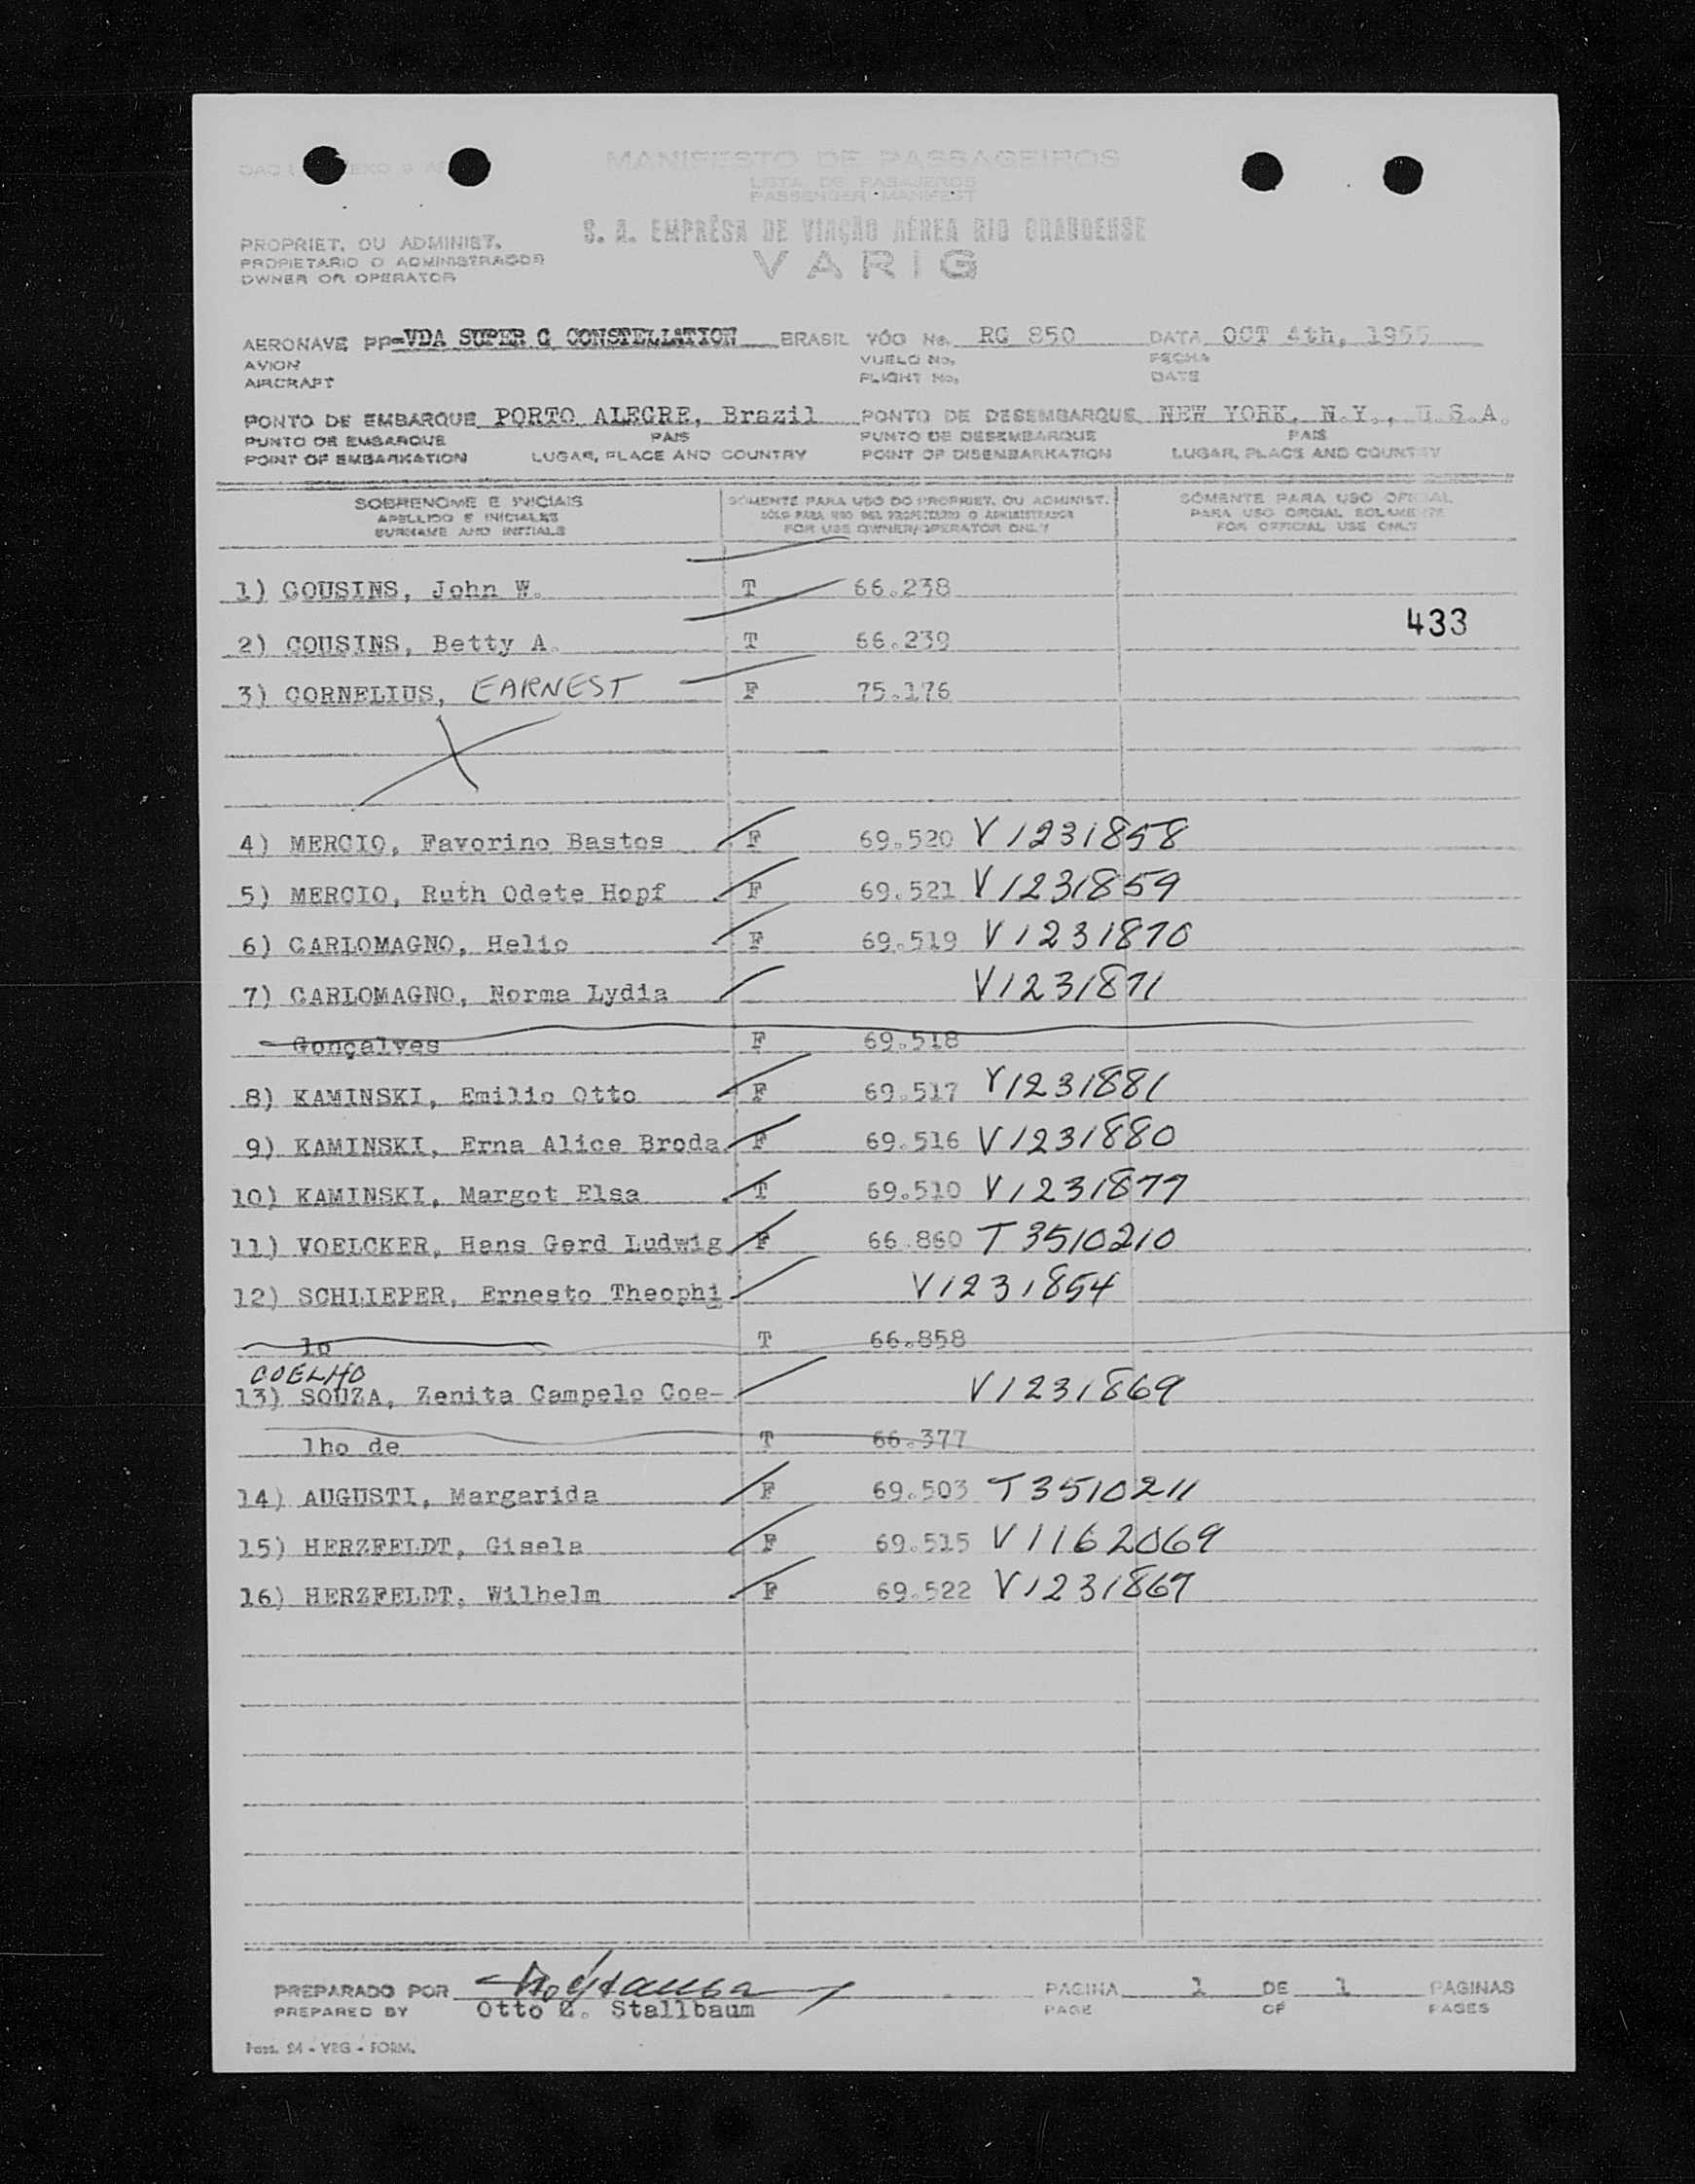 MANIFESTO DE PASSAGEIROS
LISTA DE PASAJEROS
PASSENGER MANIFEST
S. A. EMPRÊSA DE VIAÇÃO AÉREA RIO GRANDENSE
VARIG
PROPRIET. OU ADMINIST.
PROPIETARIO O ADMINISTRADOR
OWNER OR OPERATOR
AERONAVE PP-VDA SUPER G CONSTELLATION BRASIL VÔO No. RG 850 DATA OCT 4th, 1955
AVION VUELO No. FECHA
AIRCRAFT FLIGHT No. DATE
PONTO DE EMBARQUE PORTO ALEGRE, Brazil PONTO DE DESEMBARQUE NEW YORK, N.Y., U.S.A.
PUNTO DE EMBARQUE PAIS PUNTO DE DESEMBARQUE PAIS
POINT OF EMBARKATION LUGAR, PLACE AND COUNTRY POINT OF DISEMBARKATION LUGAR, PLACE AND COUNTRY
SOBRENOME E INICIAIS SOMENTE PARA USO DO PROPRIET. OU ADMINIST. SOMENTE PARA USO OFICIAL
APELLIDO E INICIALES SÓLO PARA USO DEL PROPIETARIO O ADMINISTRADOR PARA USO OFICIAL SOLAMENTE
SURNAME AND INITIALS FOR USE OWNER/OPERATOR ONLY FOR OFFICIAL USE ONLY
1) COUSINS, John W. T 66.238
433
2) COUSINS, Betty A. T 66.239
3) CORNELIUS, EARNEST F 75.176
4) MERCIO, Favorino Bastos F 69.520 V1231858
5) MERCIO, Ruth Odete Hopf F 69.521 V1231859
6) CARLOMAGNO, Helio F 69.519 V1231870
7) CARLOMAGNO, Norma Lydia V1231871
Gonçalves F 69.518
8) KAMINSKI, Emilio Otto F 69.517 V1231881
9) KAMINSKI, Erna Alice Broda F 69.516 V1231880
10) KAMINSKI, Margot Elsa T 69.510 V1231877
11) VOELCKER, Hans Gerd Ludwig F 66.860 T3510210
12) SCHLIEPER, Ernesto Theophi V1231854
lo T 66.858
COELHO
13) SOUZA, Zenita Campelo Coe- V1231869
lho de T 66.377
14) AUGUSTI, Margarida F 69.503 T3510211
15) HERZFELDT, Gisela F 69.515 V1162069
16) HERZFELDT, Wilhelm F 69.522 V1231867
PREPARADO POR PAGINA 1 DE 1 PAGINAS
PREPARED BY Otto E. Stallbaum PAGE OF PAGES
Pass. 24 - VRG - FORM.